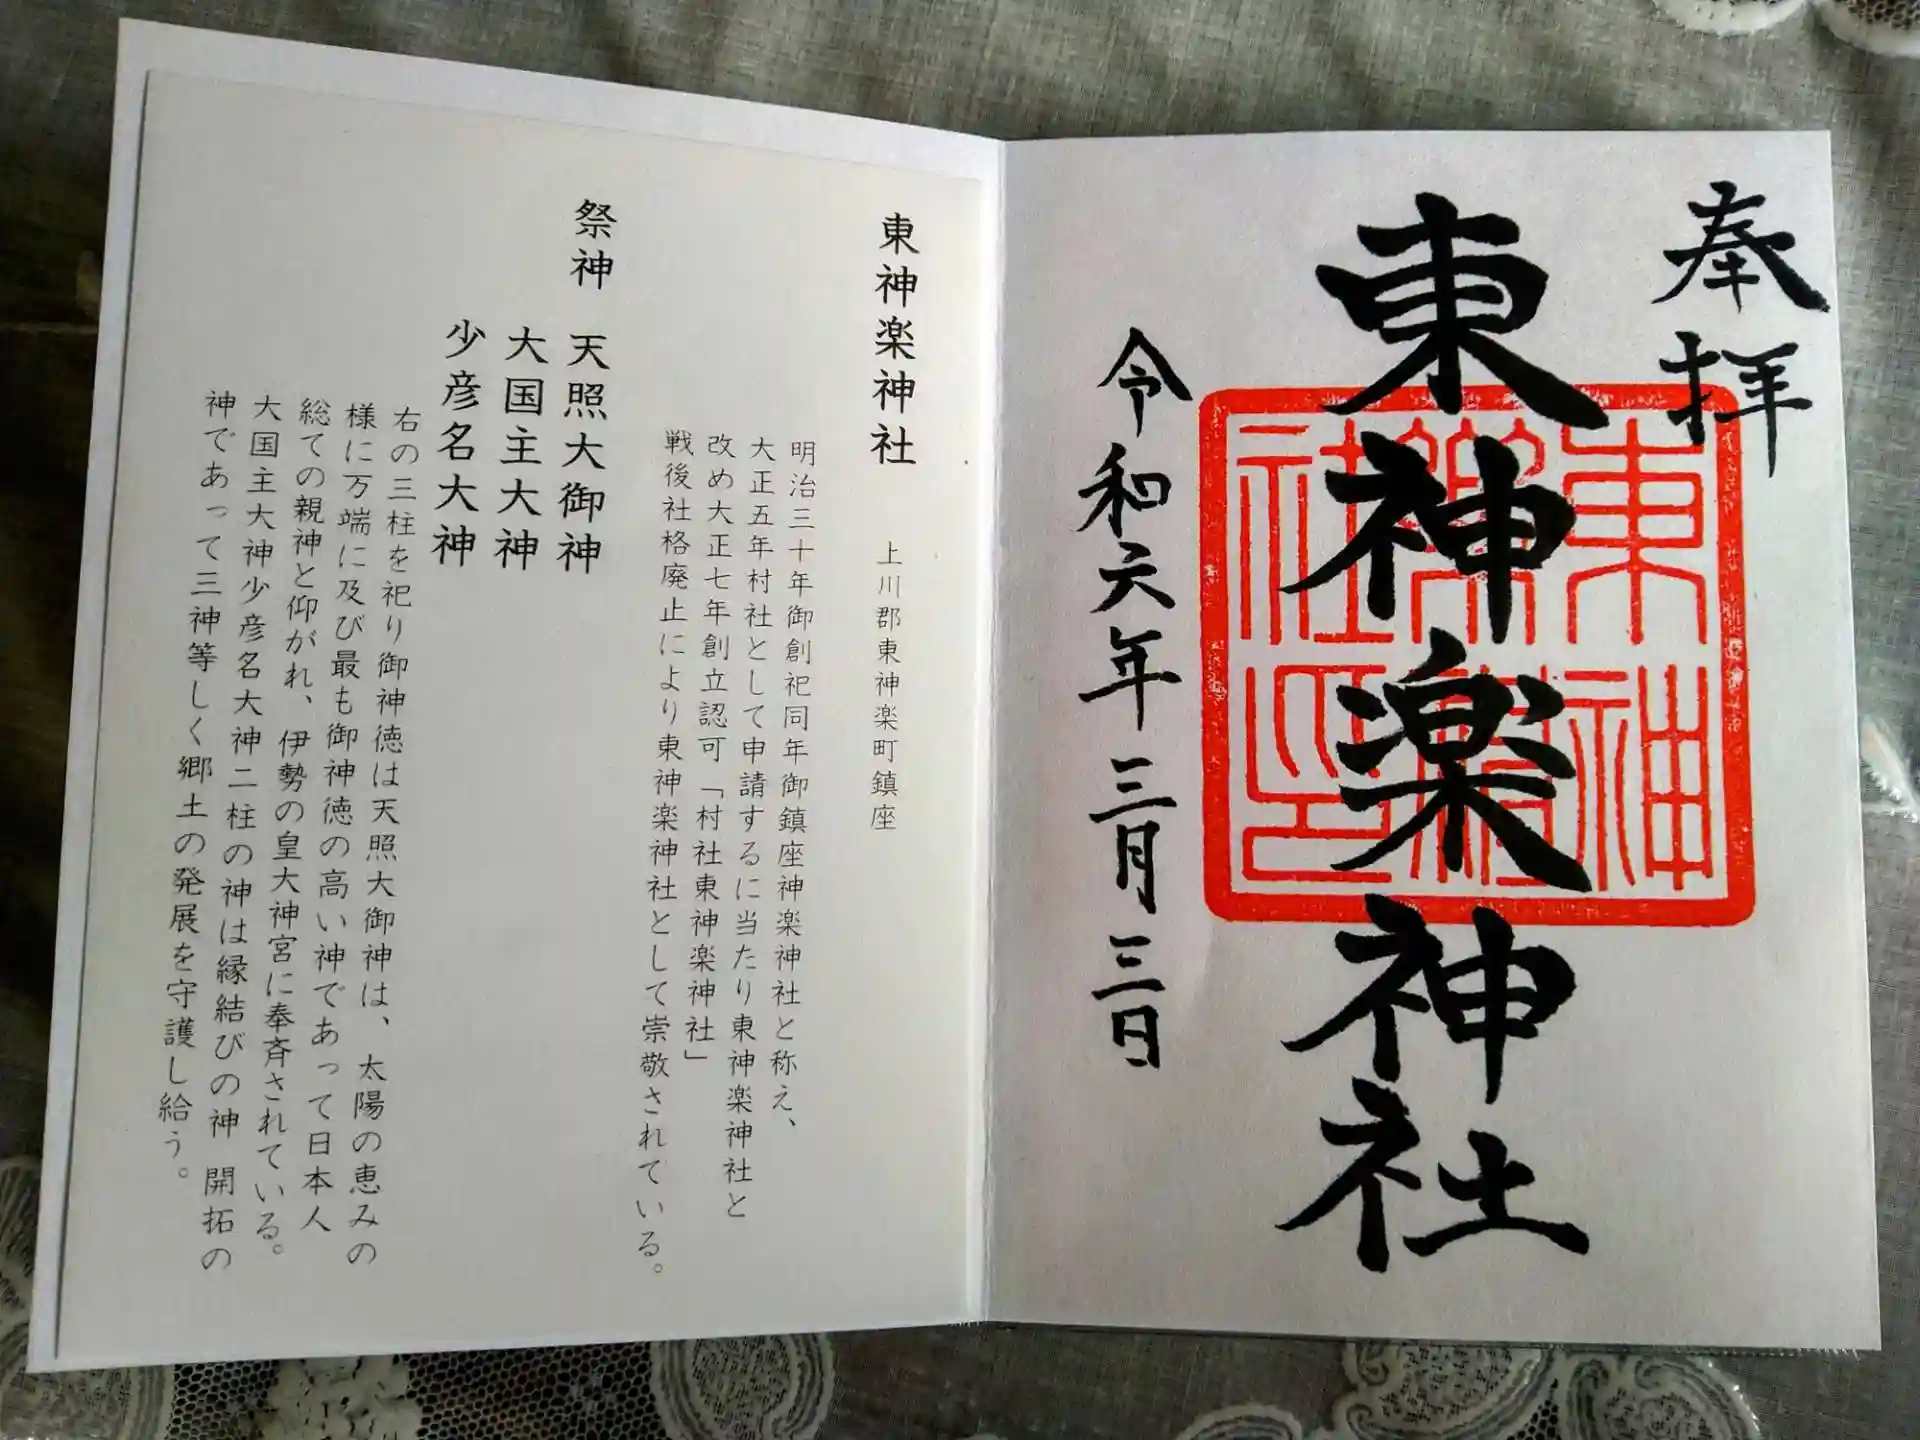 奉拝
東神楽神社
東神楽神社印
令和六年三月三日
東神楽神社
上川郡東神楽町鎮座
明治三十年御創祀同年御鎮座神楽神社と称え、
大正五年村社として申請するに当たり東神楽神社と
改め大正七年創立認可「村社東神楽神社」
戦後社格廃止により東神楽神社として崇敬されている。
祭神 天照大御神
大国主大神
少彦名大神
右の三柱を祀り御神徳は天照大御神は、太陽の恵みの
様に万端に及び最も御神徳の高い神であって日本人
総ての親神と仰がれ、伊勢の皇大神宮に奉斉されている。
大国主大神少彦名大神二柱の神は縁結びの神 開拓の
神であって三神等しく郷土の発展を守護し給う。